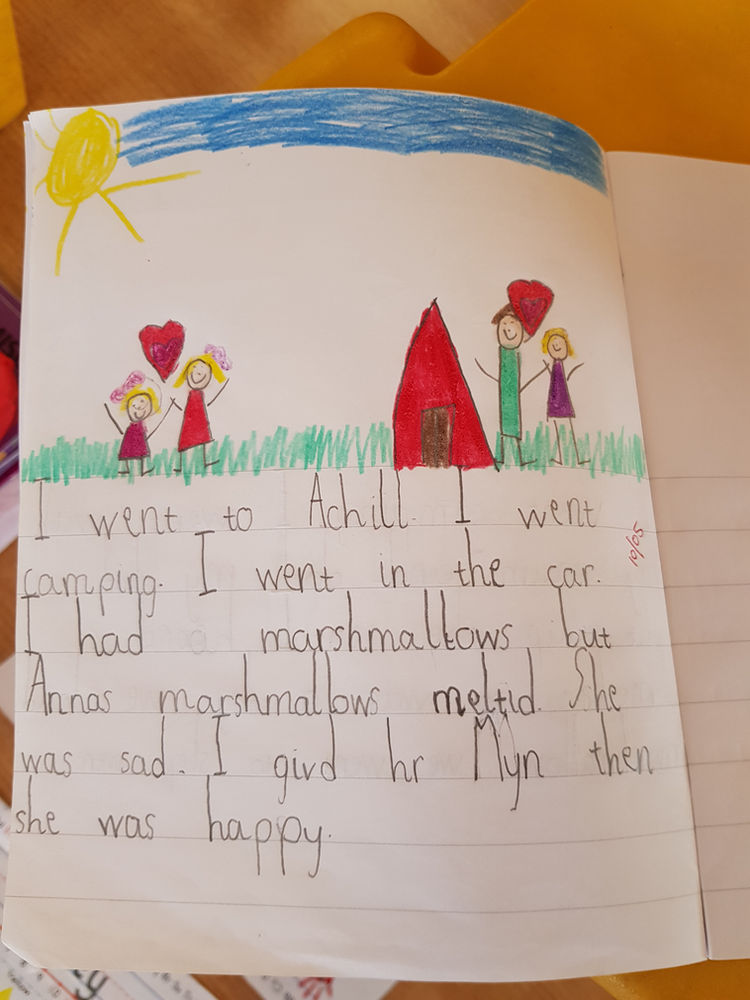 I went to Achill. I went
camping. I went in the car.
I had marshmallows, but
Annas marshmallows meltid. She
was sad. I givd hr Myn then
she was happy.
10/05